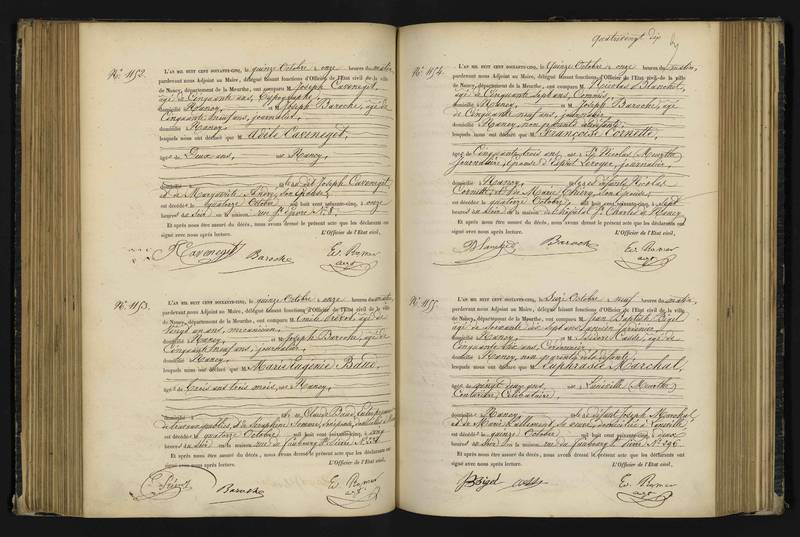 quatrevingt dix
N.º 1152.
L'AN MIL HUIT CENT SOIXANTE-CINQ, le quinze Octobre à onze heures du matin,
pardevant nous Adjoint au Maire, délégué faisant fonctions d'Officier de l'Etat civil de la ville
de Nancy, département de la Meurthe, ont comparu M. Joseph Caveneget,
âgé de Cinquante ans, Typographe,
domicilié Nancy, et M. Joseph Baroche, âgé de
Cinquante neuf ans, journalier,
domicilié Nancy
lesquels nous ont déclaré que M. Adèle Caveneget,
âgée de Deux ans, né à Nancy,
domicilié à fille du dit Joseph Caveneget
et de Marguerite son épouse,
est décédée le quatorze Octobre mil huit cent soixante-cinq, à onze
heures du soir en sa maison rue St Epvre N.º 8.
Et après nous être assuré du décès, nous avons dressé le présent acte que les déclarants ont
signé avec nous après lecture. L'Officier de l'Etat civil,
Caveneget Baroche Ev. Rymer
adjt
N.º 1153.
L'AN MIL HUIT CENT SOIXANTE-CINQ, le quinze Octobre à onze heures du matin,
pardevant nous Adjoint au Maire, délégué faisant fonctions d'Officier de l'Etat civil de la ville
de Nancy, département de la Meurthe, ont comparu M. Emile âgé de
Vingt un ans, mécanicien,
domicilié Nancy, et M. Joseph Baroche, âgé de
Cinquante neuf ans, journalier,
domicilié Nancy
lesquels nous ont déclaré que M. Marie Eugénie Baud,
âgée de Trois ans trois mois, née à Nancy,
domicilié à fille de Claude Baud, Entrepreneur
de travaux publics, et de Séraphine
est décédée le quatorze Octobre mil huit cent soixante-cinq, à cinq
heures du soir en sa maison rue du faubourg St Pierre N.º
Et après nous être assuré du décès, nous avons dressé le présent acte que les déclarants ont
signé avec nous après lecture. L'Officier de l'Etat civil,
Baroche Ev. Rymer
adjt
N.º 1154.
L'AN MIL HUIT CENT SOIXANTE-CINQ, le Quinze Octobre à onze heures du matin,
pardevant nous Adjoint au Maire, délégué faisant fonctions d'Officier de l'Etat civil de la ville
de Nancy, département de la Meurthe, ont comparu M. Nicolas Blanchet,
âgé de Cinquante sept ans, Commis,
domicilié Nancy, et M. Joseph Baroche, âgé
de Cinquante neuf ans, journalier,
domicilié Nancy, non parents
lesquels nous ont déclaré que M. Françoise Cornette,
âgée de Cinquante trois ans, née à St Nicolas (Meurthe)
journalière, épouse d' Leroyer, journalier,
domicilié Nancy, fille des défunts Nicolas
Cornette et de Marie son épouse,
est décédée le quatorze Octobre mil huit cent soixante-cinq, à sept
heures du soir en sa maison à l'hôpital St Charles de Nancy
Et après nous être assuré du décès, nous avons dressé le présent acte que les déclarants ont
signé avec nous après lecture. L'Officier de l'Etat civil,
Blanchet Baroche Ev. Rymer
adjt
N.º 1155.
L'AN MIL HUIT CENT SOIXANTE-CINQ, le Seize Octobre à neuf heures du matin,
pardevant nous Adjoint au Maire, délégué faisant fonctions d'Officier de l'Etat civil de la ville
de Nancy, département de la Meurthe, ont comparu M. Jean Baptiste
âgé de soixante dix sept ans, ancien
domicilié Nancy, et M. Isidore âgé de
Cinquante six ans, Cordonnier
domicilié Nancy, non parents
lesquels nous ont déclaré que M. Euphrasie Marchal,
âgée de vingt cinq ans, née à Lunéville (Meurthe)
Couturière, Célibataire,
domicilié Nancy, fille de défunt Joseph Marchal
et de Marie sa veuve, domiciliée à Lunéville
est décédée le quinze Octobre mil huit cent soixante-cinq, à deux
heures du soir en sa maison rue du faubourg St Pierre N.º
Et après nous être assuré du décès, nous avons dressé le présent acte que les déclarants ont
signé avec nous après lecture. L'Officier de l'Etat civil,
Ev. Rymer
adjt